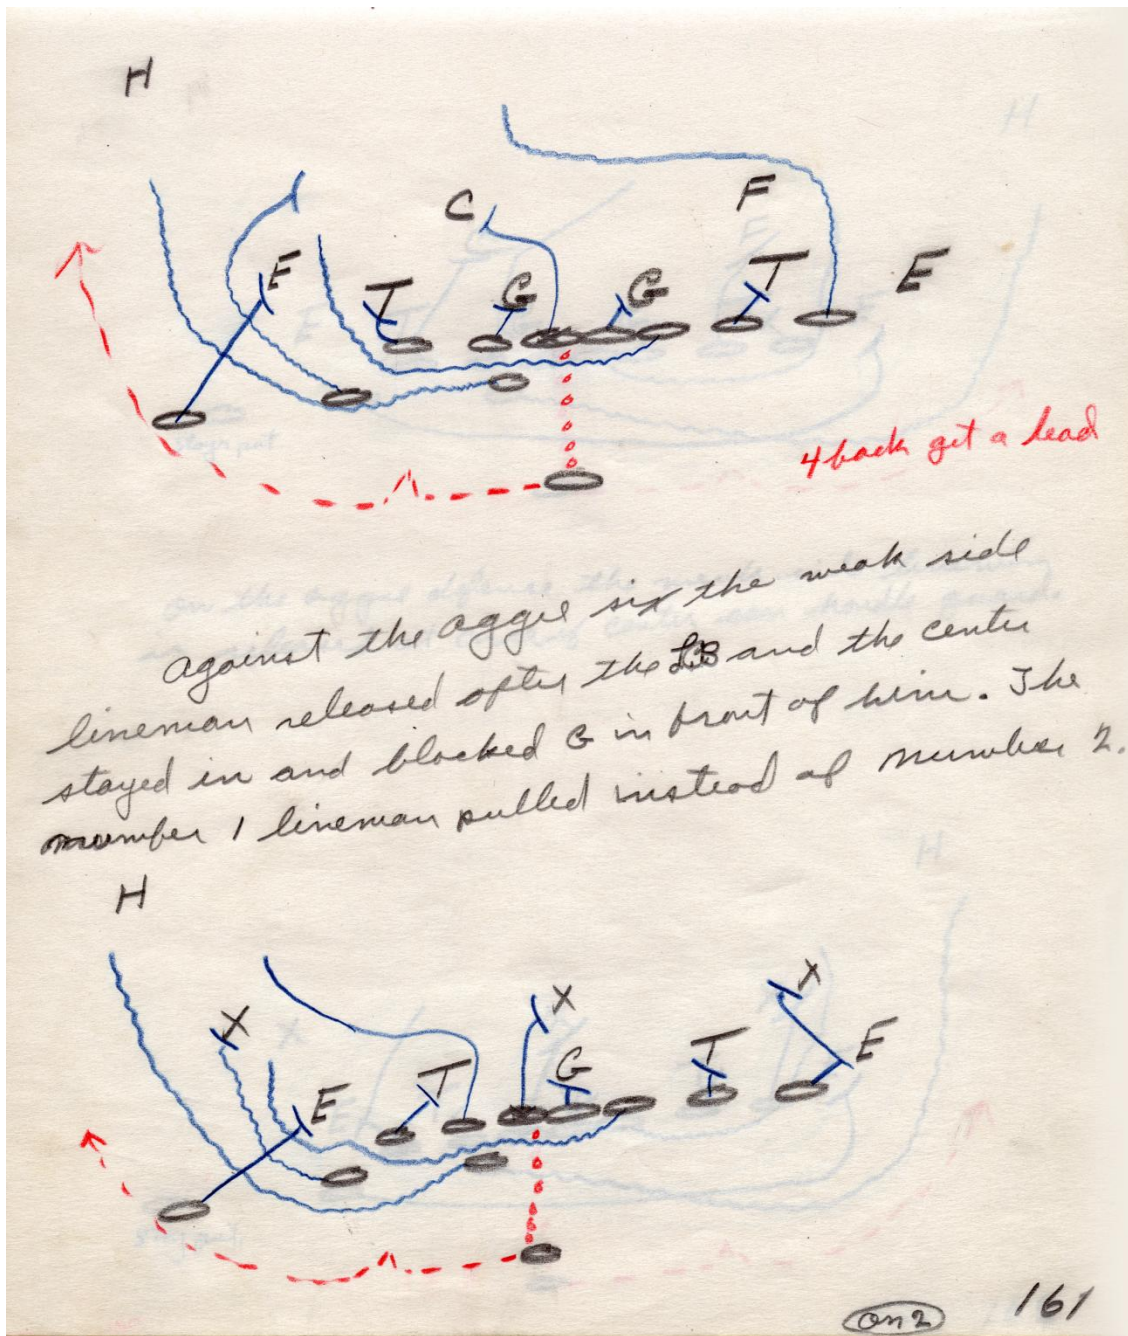 H
C
F
E
T
G
G
T
E
4 back get a lead
against the aggie six the weak side
lineman released after the LB and the center
stayed in and blocked G in front of him. The
number 1 lineman pulled instead of number 2.
H
X
X
X
E
T
G
T
E
on 2
161